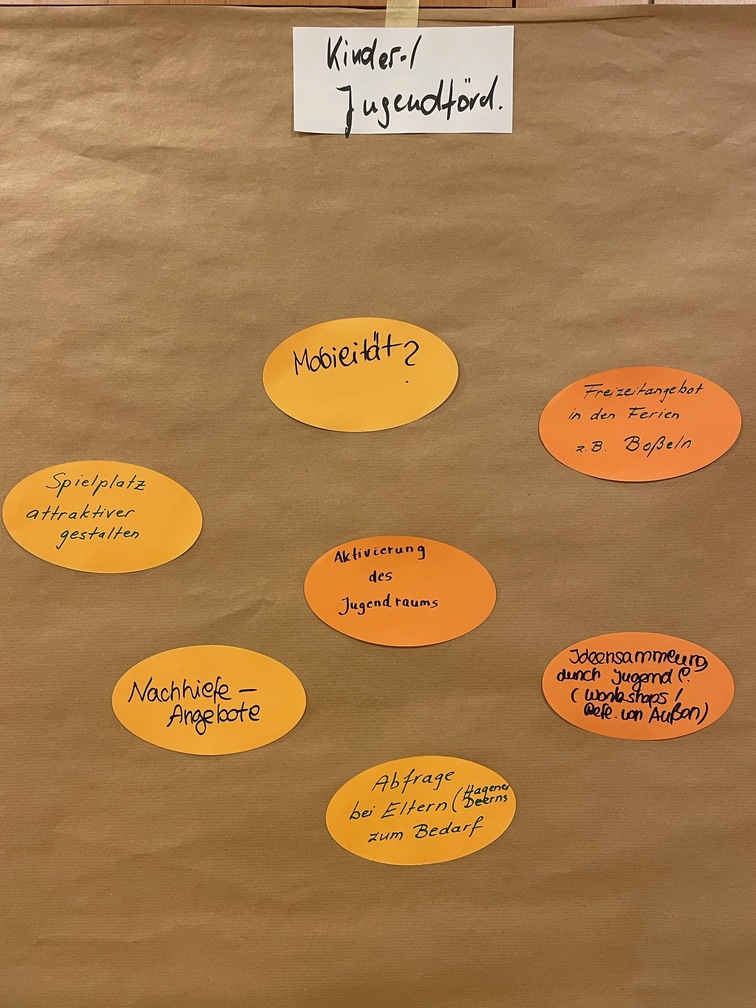 Kinder-/
Jugendförd.
Mobilität?
Freizeitangebot
in den Ferien
z.B. Boßeln
Spielplatz
attraktiver
gestalten
Aktivierung
des
Jugendraums
Ideensammlung
durch Jugendl.
(Workshops /
von Außen)
Nachhilfe-
Angebote
Abfrage
bei Eltern (Hagener
Deerns
zum Bedarf